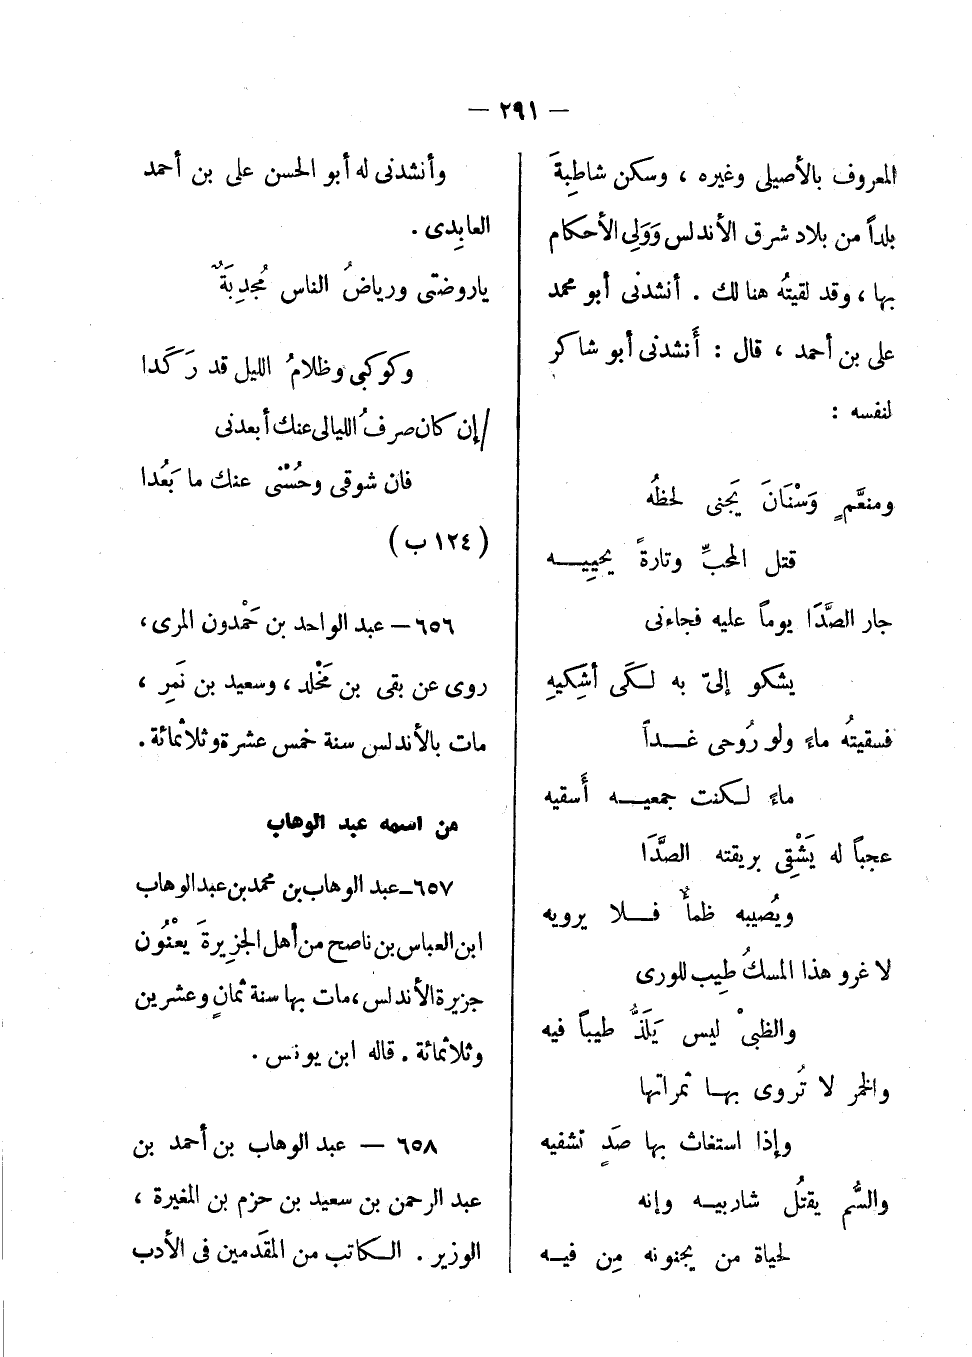 — ٢٩١ —
المعروف بالأصيلى وغيره ، وسكن شاطِبةَ
بلداً من بلاد شرق الأندلس وَوَلِى الأحكام
بها ، وقد لقيتُه هنالك . أنشدنى أبو محمد
على بن أحمد ، قال : أَنشدنى أبو شاكر
لنفسه :
ومنعَّمٍ وَسْنَانَ يَجنى لحظُه
قتل المحبِّ وتارةً يحيِيــه
جار الصَّدَا يوماً عليه فجاءنى
يشكو إلىّ به لـكَى أشكِيهِ
فسقيتُه ماءً ولو رُوحى غــداً
ماءً لـكنت جمعيــه أَسقيه
عجباً له يَشْقِى بريقته الصَّدَا
ويُصيبه ظمأٌ فــلا يرويه
لا غرو هذا المسكُ طِيب للورى
والظبىْ ليس يَلَذُّ طيباً فيه
والخمر لا تُروى بهــا ثمراتها
وإذا استغاث بها صَدٍ تشفيه
والسُّم يقتُل شاربيــه وإنه
لحياة من يجنونه مِن فيــه
وأنشدنى له أبو الحسن على بن أحمد
العابِدى .
ياروضتى ورياضُ الناس مُجدِبَةٌ
وكوكبى وظلامُ الليل قد رَكَدا
/إن كان صرفُ الليالى عنك أبعدنى
فان شوقى وحُسْنى عنك ما بَعُدا
( ١٢٤ ب )
٦٥٦ — عبد الواحد بن حَمْدون المرى ،
روى عن بقى بن مَخْلد ، وسعيد بن نَمَرِ ،
مات بالأندلس سنة خمس عشرة وثلاثمائة .
من اسمه عبد الوهاب
٦٥٧ ـ عبد الوهاب بن محمد بن عبد الوهاب
ابن العباس بن ناصح من أهل الجزيرةَ يعْنُون
جزيرة الأندلس ، مات بها سنة ثمانٍ وعشرين
وثلاثمائة . قاله ابن يونس .
٦٥٨ — عبد الوهاب بن أحمد بن
عبد الرحمن بن سعيد بن حزم بن المغيرة ،
الوزير . الـكاتب من المقَدمين فى الأدب